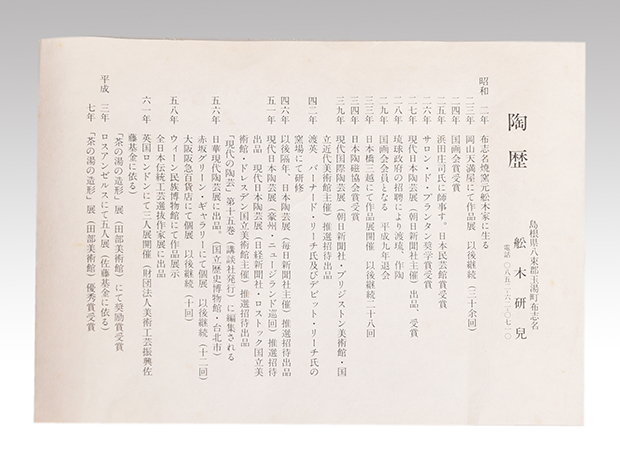 陶歴
島根県八束郡玉湯町布志名
舩木研兒
電話 〇八五二・六二・〇七一〇
昭和 二年 布志名焼窯元舩木家に生る
二三年 岡山天満屋にて作品展 以後継続(二十余回)
二四年 国画会賞受賞
二五年 浜田庄司氏に師事す。日本民芸館賞受賞
二六年 サロン・ド・プランタン奨学賞受賞
二七年 現代日本陶芸展(朝日新聞社主催)出品、受賞
二八年 琉球政府の招聘により渡琉、作陶
二九年 国画会会員となる 平成九年退会
三三年 日本橋三越にて作品展開催 以後継続二十八回
三四年 日本陶磁協会賞受賞
三九年 現代国際陶芸展(朝日新聞社・ブリジストン美術館・国
立近代美術館主催)推選招待出品
四二年 渡英 バーナード・リーチ氏及びデビット・リーチ氏の
窯場にて研修
四六年 以後隔年、日本陶芸展(毎日新聞社主催)推選招待出品
五一年 現代日本陶芸展(豪州・ニュージランド巡回)推選招待
出品 現代日本陶芸展(日経新聞社・ロストック国立美
術館・ドレスデン国立美術館主催)推選招待出品
「現代の陶芸」第十五巻(講談社発行)に編集される
五六年 日華現代陶芸展に出品。(国立歴史博物館・台北市)
赤坂グリーン・ギャラリーにて個展 以後継続(十二回)
大阪阪急百貨店にて個展 以後継続(十回)
五八年 ウィーン民族博物館にて作品展示
全日本伝統工芸選抜作家展に出品
六一年 英国ロンドンにて三人展開催(財団法人美術工芸振興佐
藤基金に依る)
「茶の湯の造形」展(田部美術館)にて奨励賞受賞
平成 三年 ロスアンゼルスにて五人展(佐藤基金に依る)
七年 「茶の湯の造形」展(田部美術館)優秀賞受賞